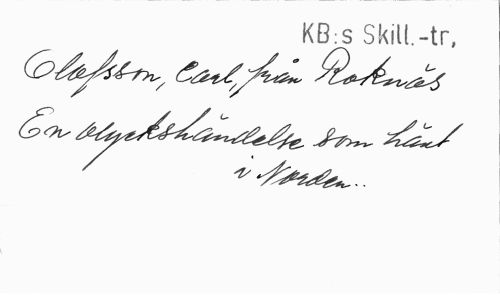 KB:s Skill.-tr,
Olofsson, Carl, från Roknäs
En olyckshändelse som hänt
i Norden..